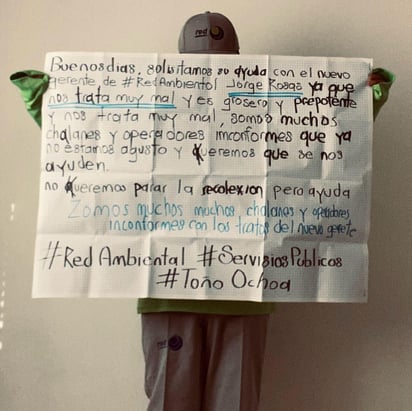 red
Buenos dias, solisitamos su ayuda con el nuevo
gerente de #RedAmbiental Jorge Rosas ya que
nos trata muy mal y es grosero y prepotente
y nos trata muy mal, somos muchos
chalanes y operadores imconformes que ya
no estamos agusto y queremos que se nos
ayuden.
no queremos parar la recolexion pero ayuda
Zomos muchos muchos chalanes y operadores
inconformes con los tratos del nuevo gerete
#Red Ambiental #Servisios Publicos
#Toño Ochoa
red